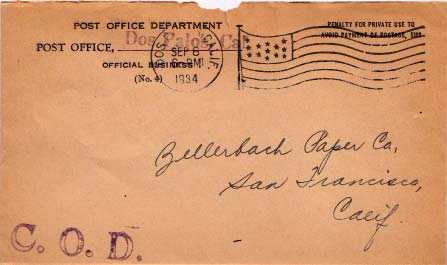 POST OFFICE DEPARTMENT
POST OFFICE, Dos Palos, Ca
OFFICIAL BUSINESS
(No. 4)
DOS CALIF.
SEP 6
PM
1934
PENALTY FOR PRIVATE USE TO
AVOID PAYMENT OF POSTAGE, $300
Zellerbach Paper Co,
San Francisco,
Calif.
C. O. D.